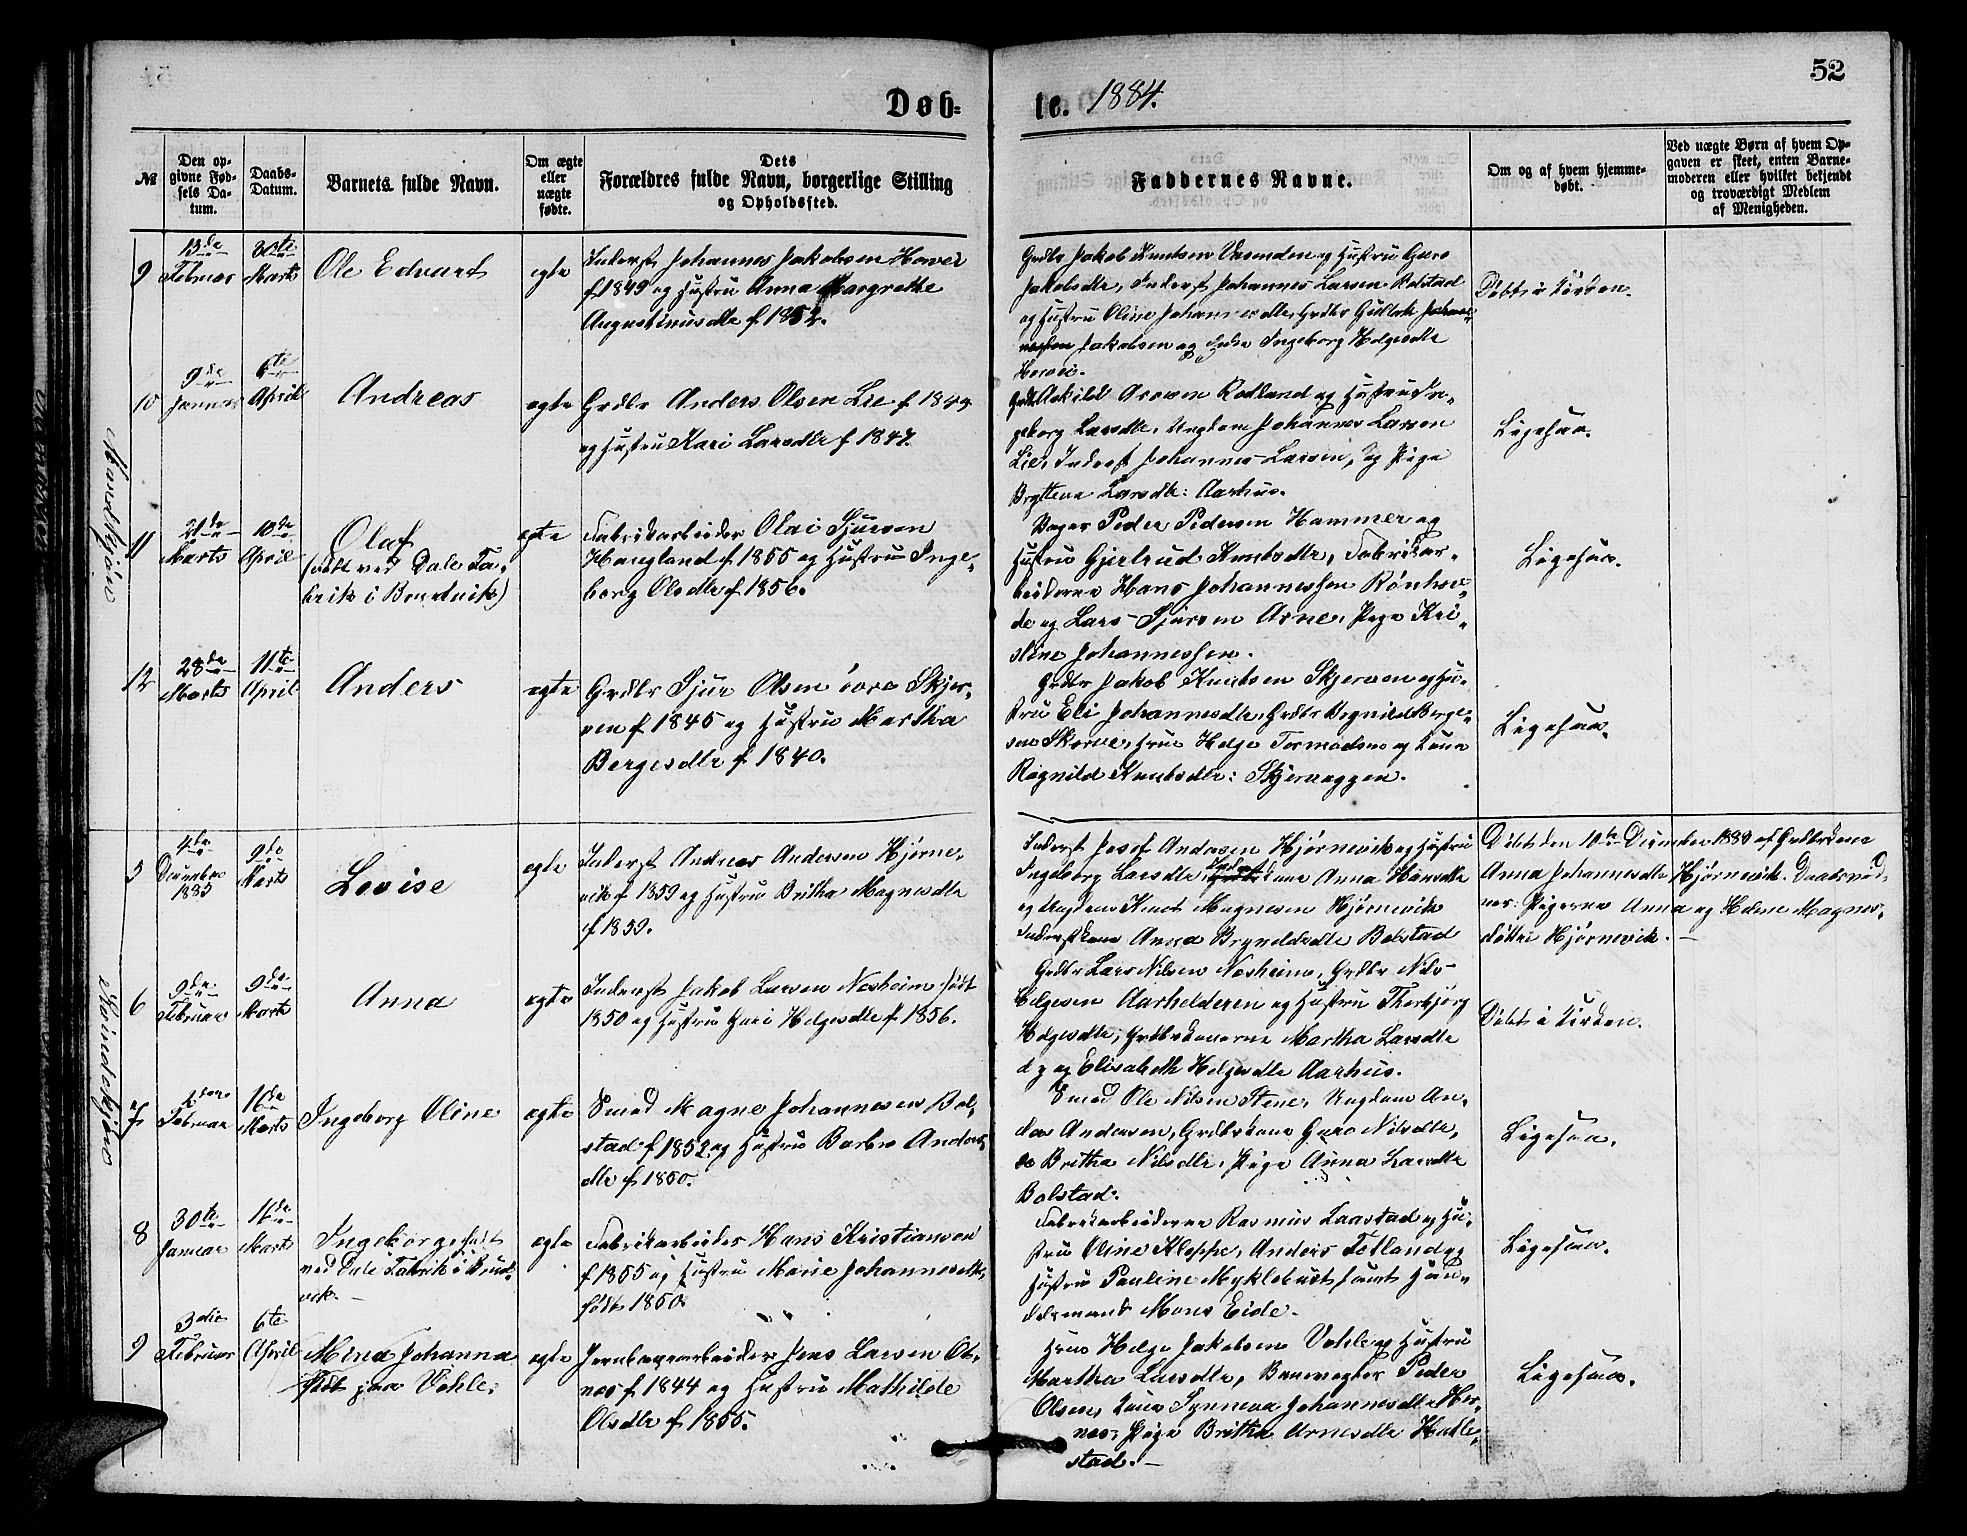 52
Døb-
te. 1884.
№
Den op-
givne Fød-
sels Da-
tum.
Daabs-
Datum.
Barnets fulde Navn.
Om ægte
eller
uægte
fødte.
Dets
Forældres fulde Navn, borgerlige Stilling
og Opholdssted.
Faddernes Navne.
Om og af hvem hjemme-
døbt.
Ved uægte Børn af hvem Op-
gaven er skeet, enten Barne-
moderen eller hvilket bekjendt
og troværdigt Medlem
af Menigheden.
Mandkjøn
9
13de
Februar
30te
Marts
Ole Edvart
egte
Inderst Johannes Jakobsen Horvei
f 1849 og Hustru Anna Margrethe
Augustinusdtr f. 1852.
Grdbr Jakob Knutsen Vasenden og Hustru Guro
Jakobsdtr, Inderst Johannes Larsen Rolstad
og Hustru Oline Johannesdtr, Grdbr Gullak
Jakobsen og Ingeborg Helgesdtr
Horvei.
Døbt i Kirken.
10
9de
Januar
6te
April
Andreas
egte
Grdbr Anders Olsen Lie f 1844
og Hustru Kari Larsdtr f 1847.
Askild Rodland og Hustru In-
geborg Larsdtr, Ungkarl Johannes Larsen
Lie, Inderst Johannes Larsen, og Pige
Larsdtr: Aarhus.
Ligesaa.
11
21de
Marts
10de
April
Olaf
(født ved Dale Fa-
brik i Bruvik)
egte
Fabrikarbeider Olai Sjursen
Haugland f. 1855 og Hustru Inge-
borg Olsdtr f. 1856.
Bager Peder Pedersen Hammer og
Hustru Gjertrud Knutsdtr, Fabrikar-
beiderne Hans Johannessen Rønhov-
de og Lars Sjursen Arne, Pige Kri-
stine Johannessen.
Ligesaa.
12
28de
Marts
11te
April
Anders
egte
Grdbr Sjur Olsen Skjer-
ven f 1845 og Hustru Martha
Bergesdtr f. 1840.
Grdbr Jakob Knutsen Skjerven og Hu-
stru Eli Johannesdtr, Grdbr Bergе-
sen Skorve, Helge Tormodsen og Kone
Ragnild Knutsdtr: Skjerveggen.
Ligesaa.
Kvindekjøn
5
4de
December
1883
9de
Marts
Lovise
egte
Inderst Andreas Andersen Hjørne-
vik f 1859 og Hustru Britha Magnesdtr
f 1859.
Inderst Josef Andersen Hjørnevik og Hustru
Ingeborg Larsdtr, Inderst kone Anna Hansdtr
og Ungkarl Knut Magnesen Hjørnevik
Inderstkone Anna Brynildsdtr Bolstad
Døbt den 10de December 1883 af Grdbrkone
Anna Johannesdtr Hjørnevik. Daabsvid-
ner: Pigerne Anna og Helene Magnes-
døttre Hjørnevik. —
6
9de
Februar
9de
Marts
Anna
egte
Inderst Jakob Larsen Nesheim født
1850 og Hustru Guri Helgesdtr f. 1856.
Grdbr Lars Nilsen Nesheim, Grdbr Nils
Helgesen Aarhelderen og Hustru Thorbjørg
Helgesdtr, Grdbrkonerne Martha Larsdtr
og Elisabeth Helgesdtr Aarhus.
Døbt i Kirken.
7
Februar
16de
Marts
Ingeborg Oline
egte
Smed Magne Johannesen Bol-
stad f 1852 og Hustru Barbro Anders-
dtr f 1850.
Smed Ole Nilsen Stene, Ungkarl An-
ders Andersen, Grdbrkone Guro Nilsdtr,
Britha Nilsdtr, Pige Anna Larsdtr
Bolstad.
Ligesaa.
8
30te
Januar
16de
Marts
Ingeborg født
ved Dale Fabrik i Brud-
vik. —
egte
Fabrikarbeider Hans Kristiansen
f 1855 og Hustru Marie Johannesdtr,
født 1850.
Fabrikarbeiderne Rasmus Laastad og Hu-
stru Oline Kleppe, Anders Totland og
Hustru Pauline Myklebust samt Han-
delsmand Mons Eide.
Ligesaa.
9
3die
Februar
6te
April
Mina Johanna
født paa Vahle.
egte
Jernbanearbeider Jens Larsen Ot-
nes f 1844 og Hustru Mathilde
Olsdtr f 1855.
Helge Jakobsen Vahle og Hustru
Martha Larsdtr, Banevogter Peder
Olsen, Kone Synneva Johannesdtr Her-
nes, Pige Britha Arnesdtr Hatle-
stad. —
Ligesaa.